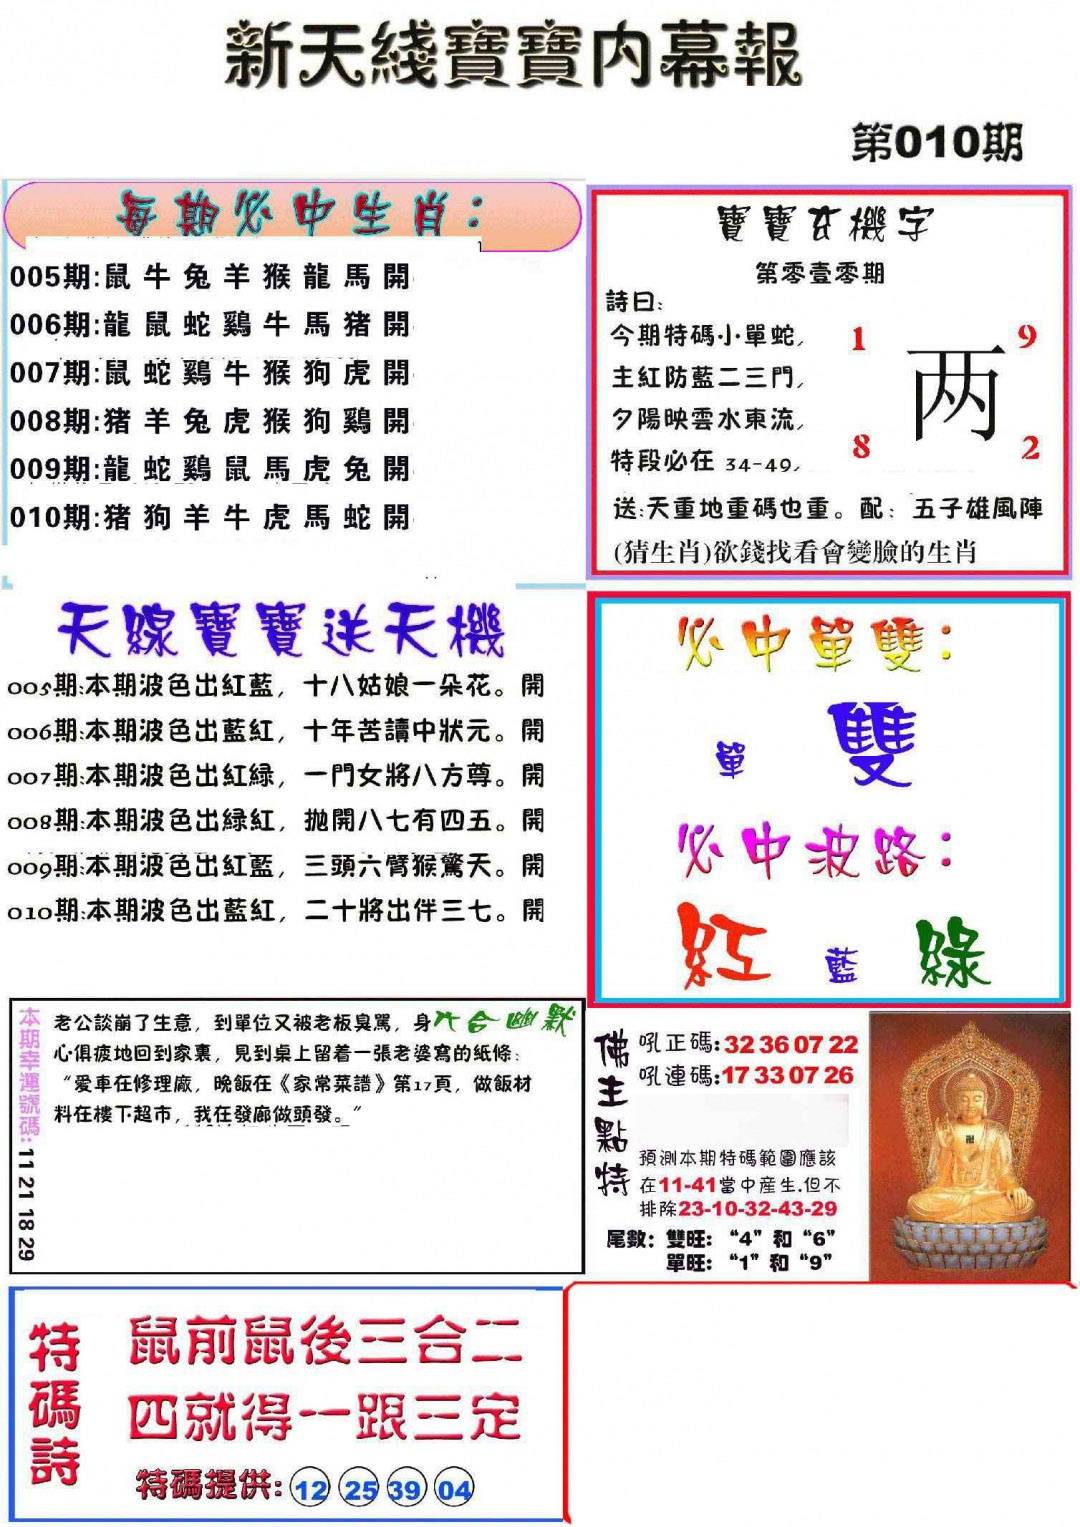 新天綫寶寶内幕報
第010期
每期必中生肖：
005期:鼠牛兔羊猴龍馬開
006期:龍鼠蛇鷄牛馬猪開
007期:鼠蛇鷄牛猴狗虎開
008期:猪羊兔虎猴狗鷄開
009期:龍蛇鷄鼠馬虎兔開
010期:猪狗羊牛虎馬蛇開
寶寶玄機字
第零壹零期
詩曰：
今期特碼小單蛇，
主紅防藍二三門，
夕陽映雲水東流，
特段必在 34-49，
1 9
两
8 2
送:天重地重碼也重。配：五子雄風陣
(猜生肖)欲錢找看會變臉的生肖
天線寶寶送天機
005期:本期波色出紅藍，十八姑娘一朵花。開
006期:本期波色出藍紅，十年苦讀中狀元。開
007期:本期波色出紅緑，一門女將八方尊。開
008期:本期波色出緑紅，抛開八七有四五。開
009期:本期波色出紅藍，三頭六臂猴驚天。開
010期:本期波色出藍紅，二十將出伴三七。開
必中單雙：
單 雙
必中波路：
紅 藍 綠
本期幸運號碼:11 21 18 29
六合幽默
老公談崩了生意，到單位又被老板臭駡，身
心俱疲地回到家裏，見到桌上留着一張老婆寫的紙條：
“愛車在修理廠，晚飯在《家常菜譜》第17頁，做飯材
料在樓下超市，我在發廊做頭發。”
佛主點特
吼正碼:32 36 07 22
吼連碼:17 33 07 26
預測本期特碼範圍應該
在11-41當中産生.但不
排除23-10-32-43-29
尾數：雙旺：“4”和“6”
單旺：“1”和“9”
特碼詩
鼠前鼠後三合二
四就得一跟三定
特碼提供: 12 25 39 04